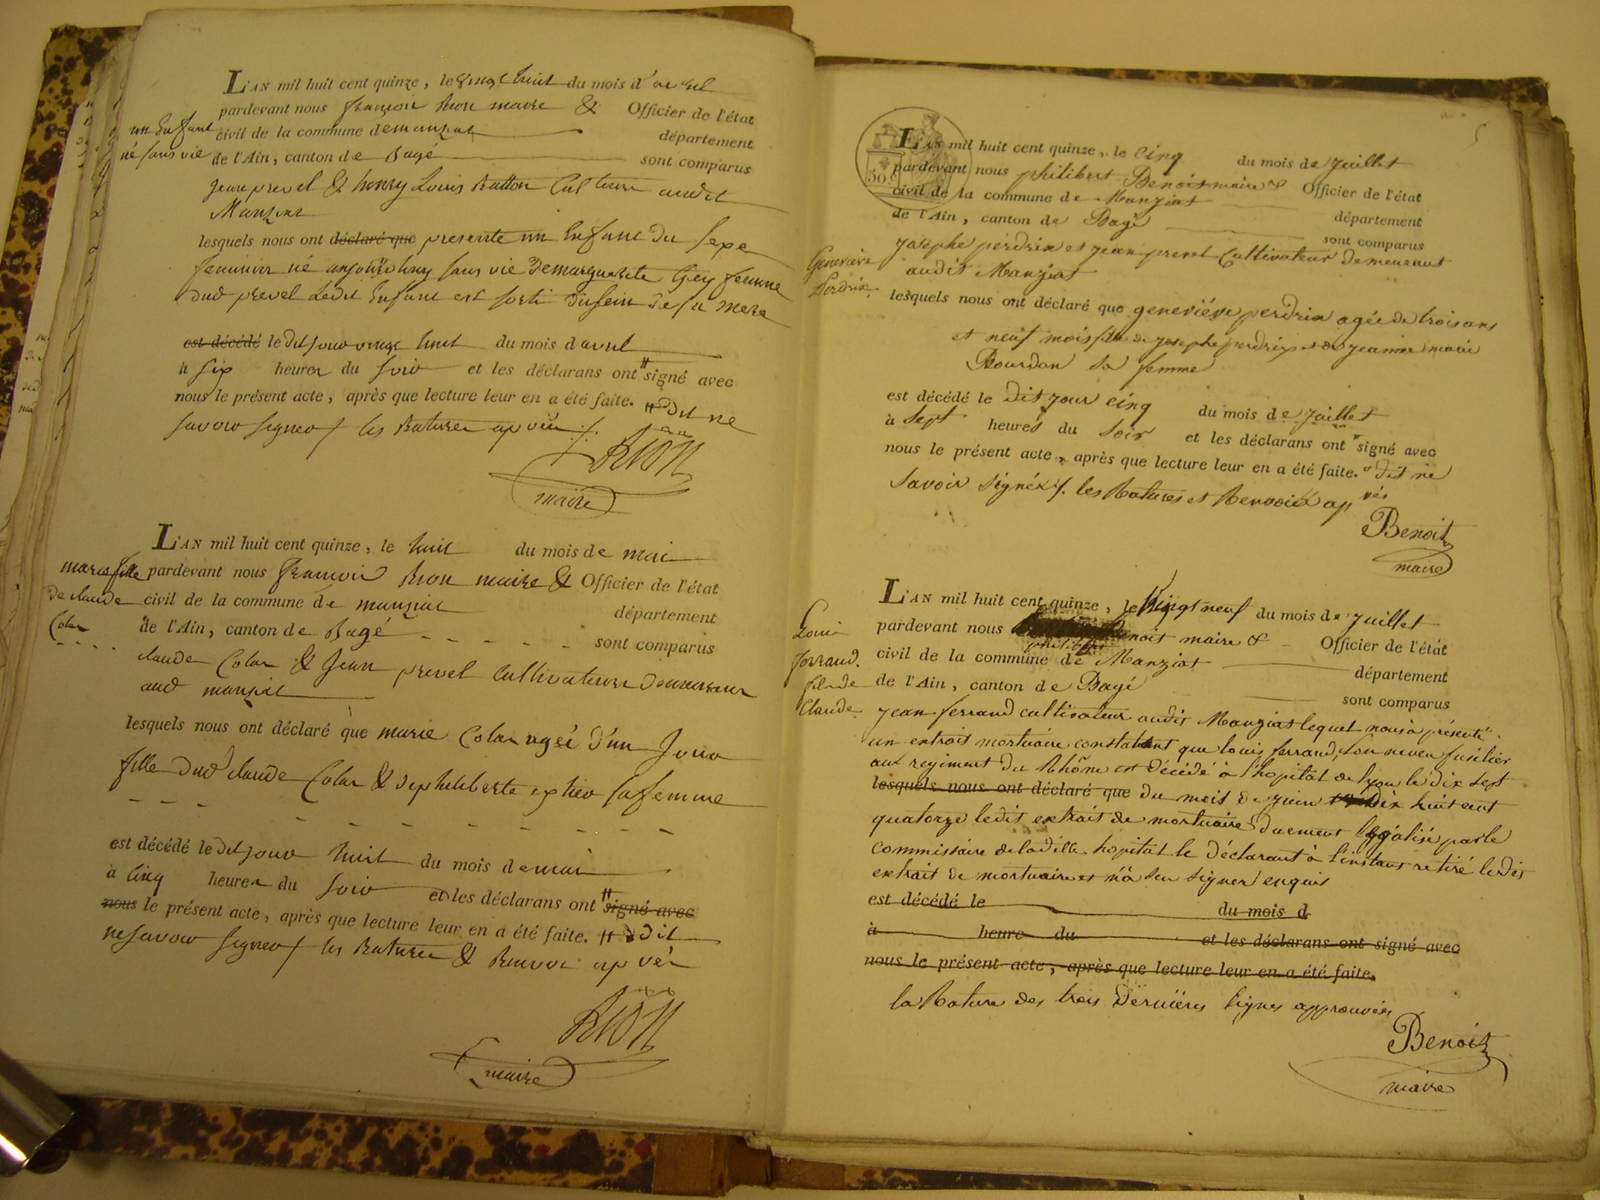 L'AN mil huit cent quinze, le vingt huit du mois d'avril
pardevant nous françois Rion maire & Officier de l'état
un Enfant
civil de la commune de manziat département
né sans vie
de l'Ain, canton de Bagé sont comparus
jean prevel & henry Louis Cult audit
Manziat
lesquels nous ont déclaré que presente un Enfant du sexe
feminin né aujourdhuy sans vie de marguerite Gey femme
dud prevel Ledit Enfant est sorti du sein de sa mere
est décédé le dit jour vingt huit du mois d avril
à six heures du soir et les déclarans ont signé avec
nous le présent acte, après que lecture leur en a été faite. dit ne
savoir signer les Ratures
Rion
maire
L'AN mil huit cent quinze, le huit du mois de mai
marie fille
pardevant nous francois Rion maire & Officier de l'état
de claude
civil de la commune de manziat département
Colas
de l'Ain, canton de Bagé sont comparus
claude Colas & Jean prevel cultivateurs demeurant
aud manziat
lesquels nous ont déclaré que marie Colas agée d'un Jour
fille dud claude Colas & de philiberte sa femme
est décédé le dit jour huit du mois de mai
à cinq heures du soir et les déclarans ont signé avec
nous le présent acte, après que lecture leur en a été faite. dit
ne savoir signer les Ratures & Renvoi
Rion
maire
5
50 c
L'AN mil huit cent quinze, le cinq du mois de juillet
pardevant nous philibert Benoit maire & Officier de l'état
civil de la commune de Manziat département
de l'Ain, canton de Bagé sont comparus
Genevieve
Perdrix
josephe perdrix et jean prevel Cultivateur demeurant
audit Manziat
lesquels nous ont déclaré que geneviéve perdrix agée de trois ans
et neuf mois fille de josephe perdrix et de jeanne marie
Bourdon sa femme
est décédé le dit jour cinq du mois de juillet
à sept heures du soir et les déclarans ont signé avec
nous le présent acte, après que lecture leur en a été faite. dit ne
savoir signér les Ratures et Renvoié app
rés
Benoit
maire
L'AN mil huit cent quinze, le vingt neuf du mois de juillet
pardevant nous Benoit maire & Officier de l'état
philibert
Louis
civil de la commune de Manziat département
ferrand
fils de
de l'Ain, canton de Bagé sont comparus
Claude
jean ferrand cultivateur audit Manziat lequel nous à présenté
un extrait mortuaire constatant que louis ferrand, son neveu fusilier
aux regiment du Rhône est décédé à l'hopital de lyon le dix sept
lesquels nous ont déclaré que du mois de juin dix huit cent
quatorze ledit extrait de mortuaire duement légalisé par le
commissaire de la ditte hopital le déclarant à l'instant retiré ledit
extrait de mortuaire et n'à seu signer enquis
est décédé le du mois d
à heure du et les déclarans ont signé avec
nous le présent acte, après que lecture leur en a été faite.
la Rature des trois dernières lignes approuvées
Benoit
maire